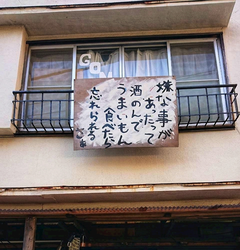 嫌な事が
あたって
酒のんで
うまいもん
食べたら
忘れられる